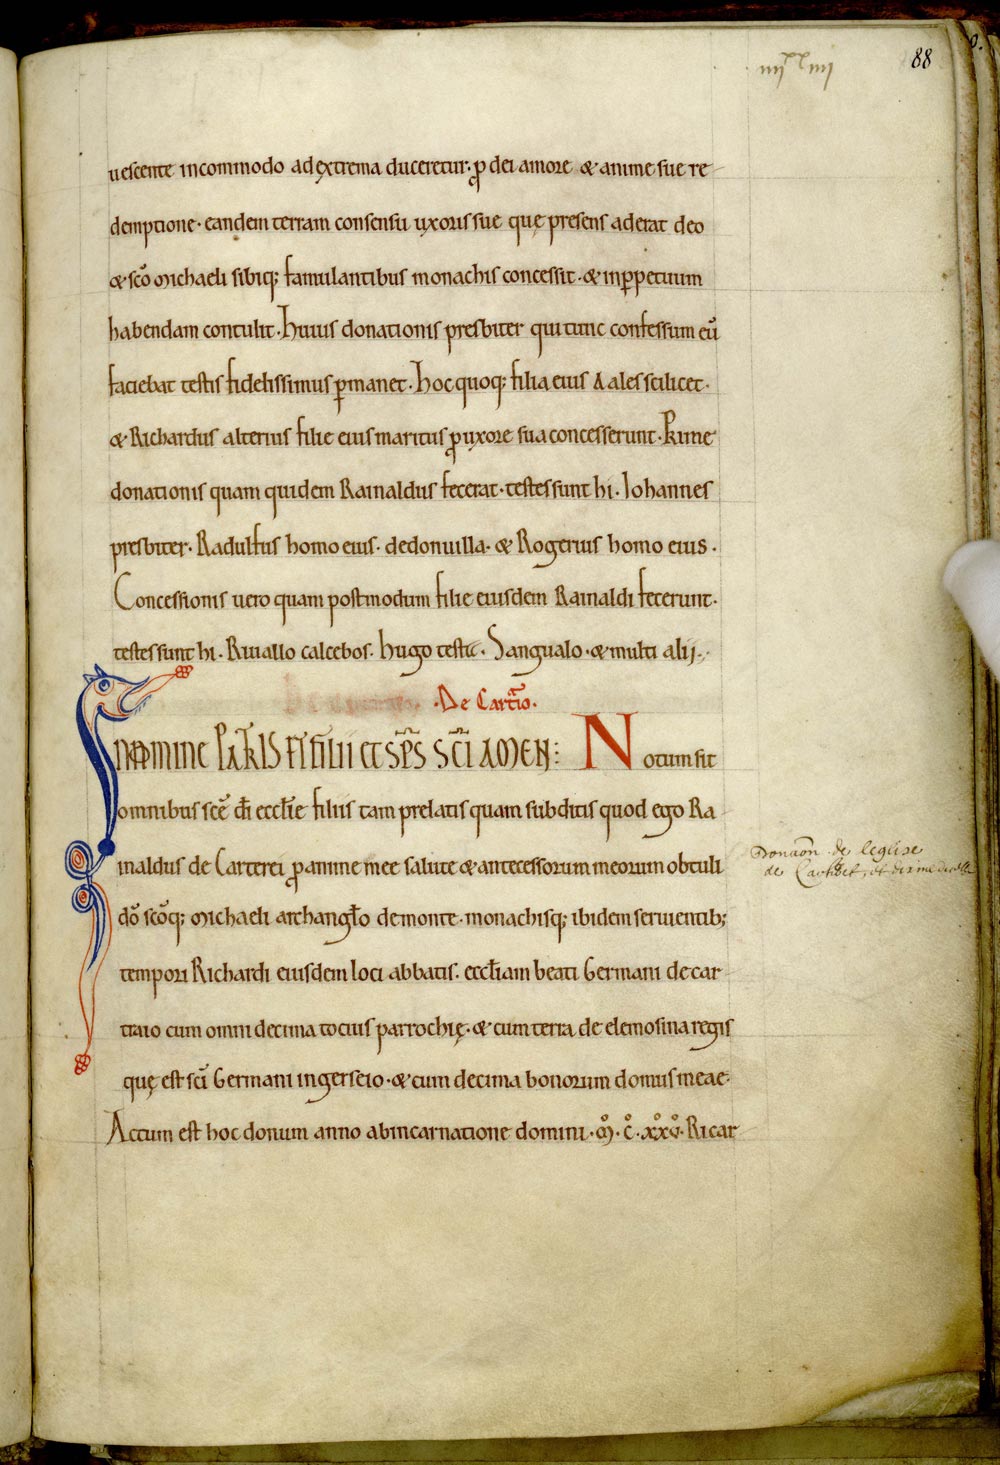 88
uescente incommodo ad extrema duceretur· ꝓ dei amore & anime sue re
demptione· eandem terram consensu uxoris sue que̜ presens aderat deo
& sc̄o Michaeli sibiq; famulantibus monachis concessit· & inꝑpetuum
habendam contulit· Huius donationis presbiter qui tunc confessum eū
faciebat testis fidelissimus ꝑmanet· Hoc quoq; filia eius Aales scilicet·
& Richardus alterius filie eius maritus ꝓ uxore sua concesserunt· Prime
donationis quam quidem Rainaldus fecerat· testes sunt hi· Iohannes
presbiter· Radulfus homo eius· dedonuilla· & Rogerius homo eius·
Concessionis uero quam postmodum filie eiusdem Rainaldi fecerunt·
testes sunt hi· Riuallo calcebos· Hugo testu· Sangualo· & multi alij·
·De Cart̄io·
IN NOMINE PATRIS ET FILII ET SP̄S SC̄I AMEN: Notum sit
omnibus sc̄e dī eccl̄ie filiis tam prelatis quam subditis quod ego Ra
inaldus de Carterei ꝓ anime mee salute & antecessorum meorum obtuli
dō sc̄oq; Michaeli archangl̄o de monte· monachisq; ibidem seruientib;
tempori Richardi eiusdem loci abbatis· eccl̄iam beati Germani de car
traio cum omni decima tocius parrochie̜· & cum terra de elemosina regis
que̜ est sc̄i Germani in gerseio· & cum decima bonorum domus meae·
Actum est hoc donum anno ab incarnatione domini· ͦM· ͦC· XXV· Ricar
Donaōn de leglise
de Carteret, et dixme dicelle